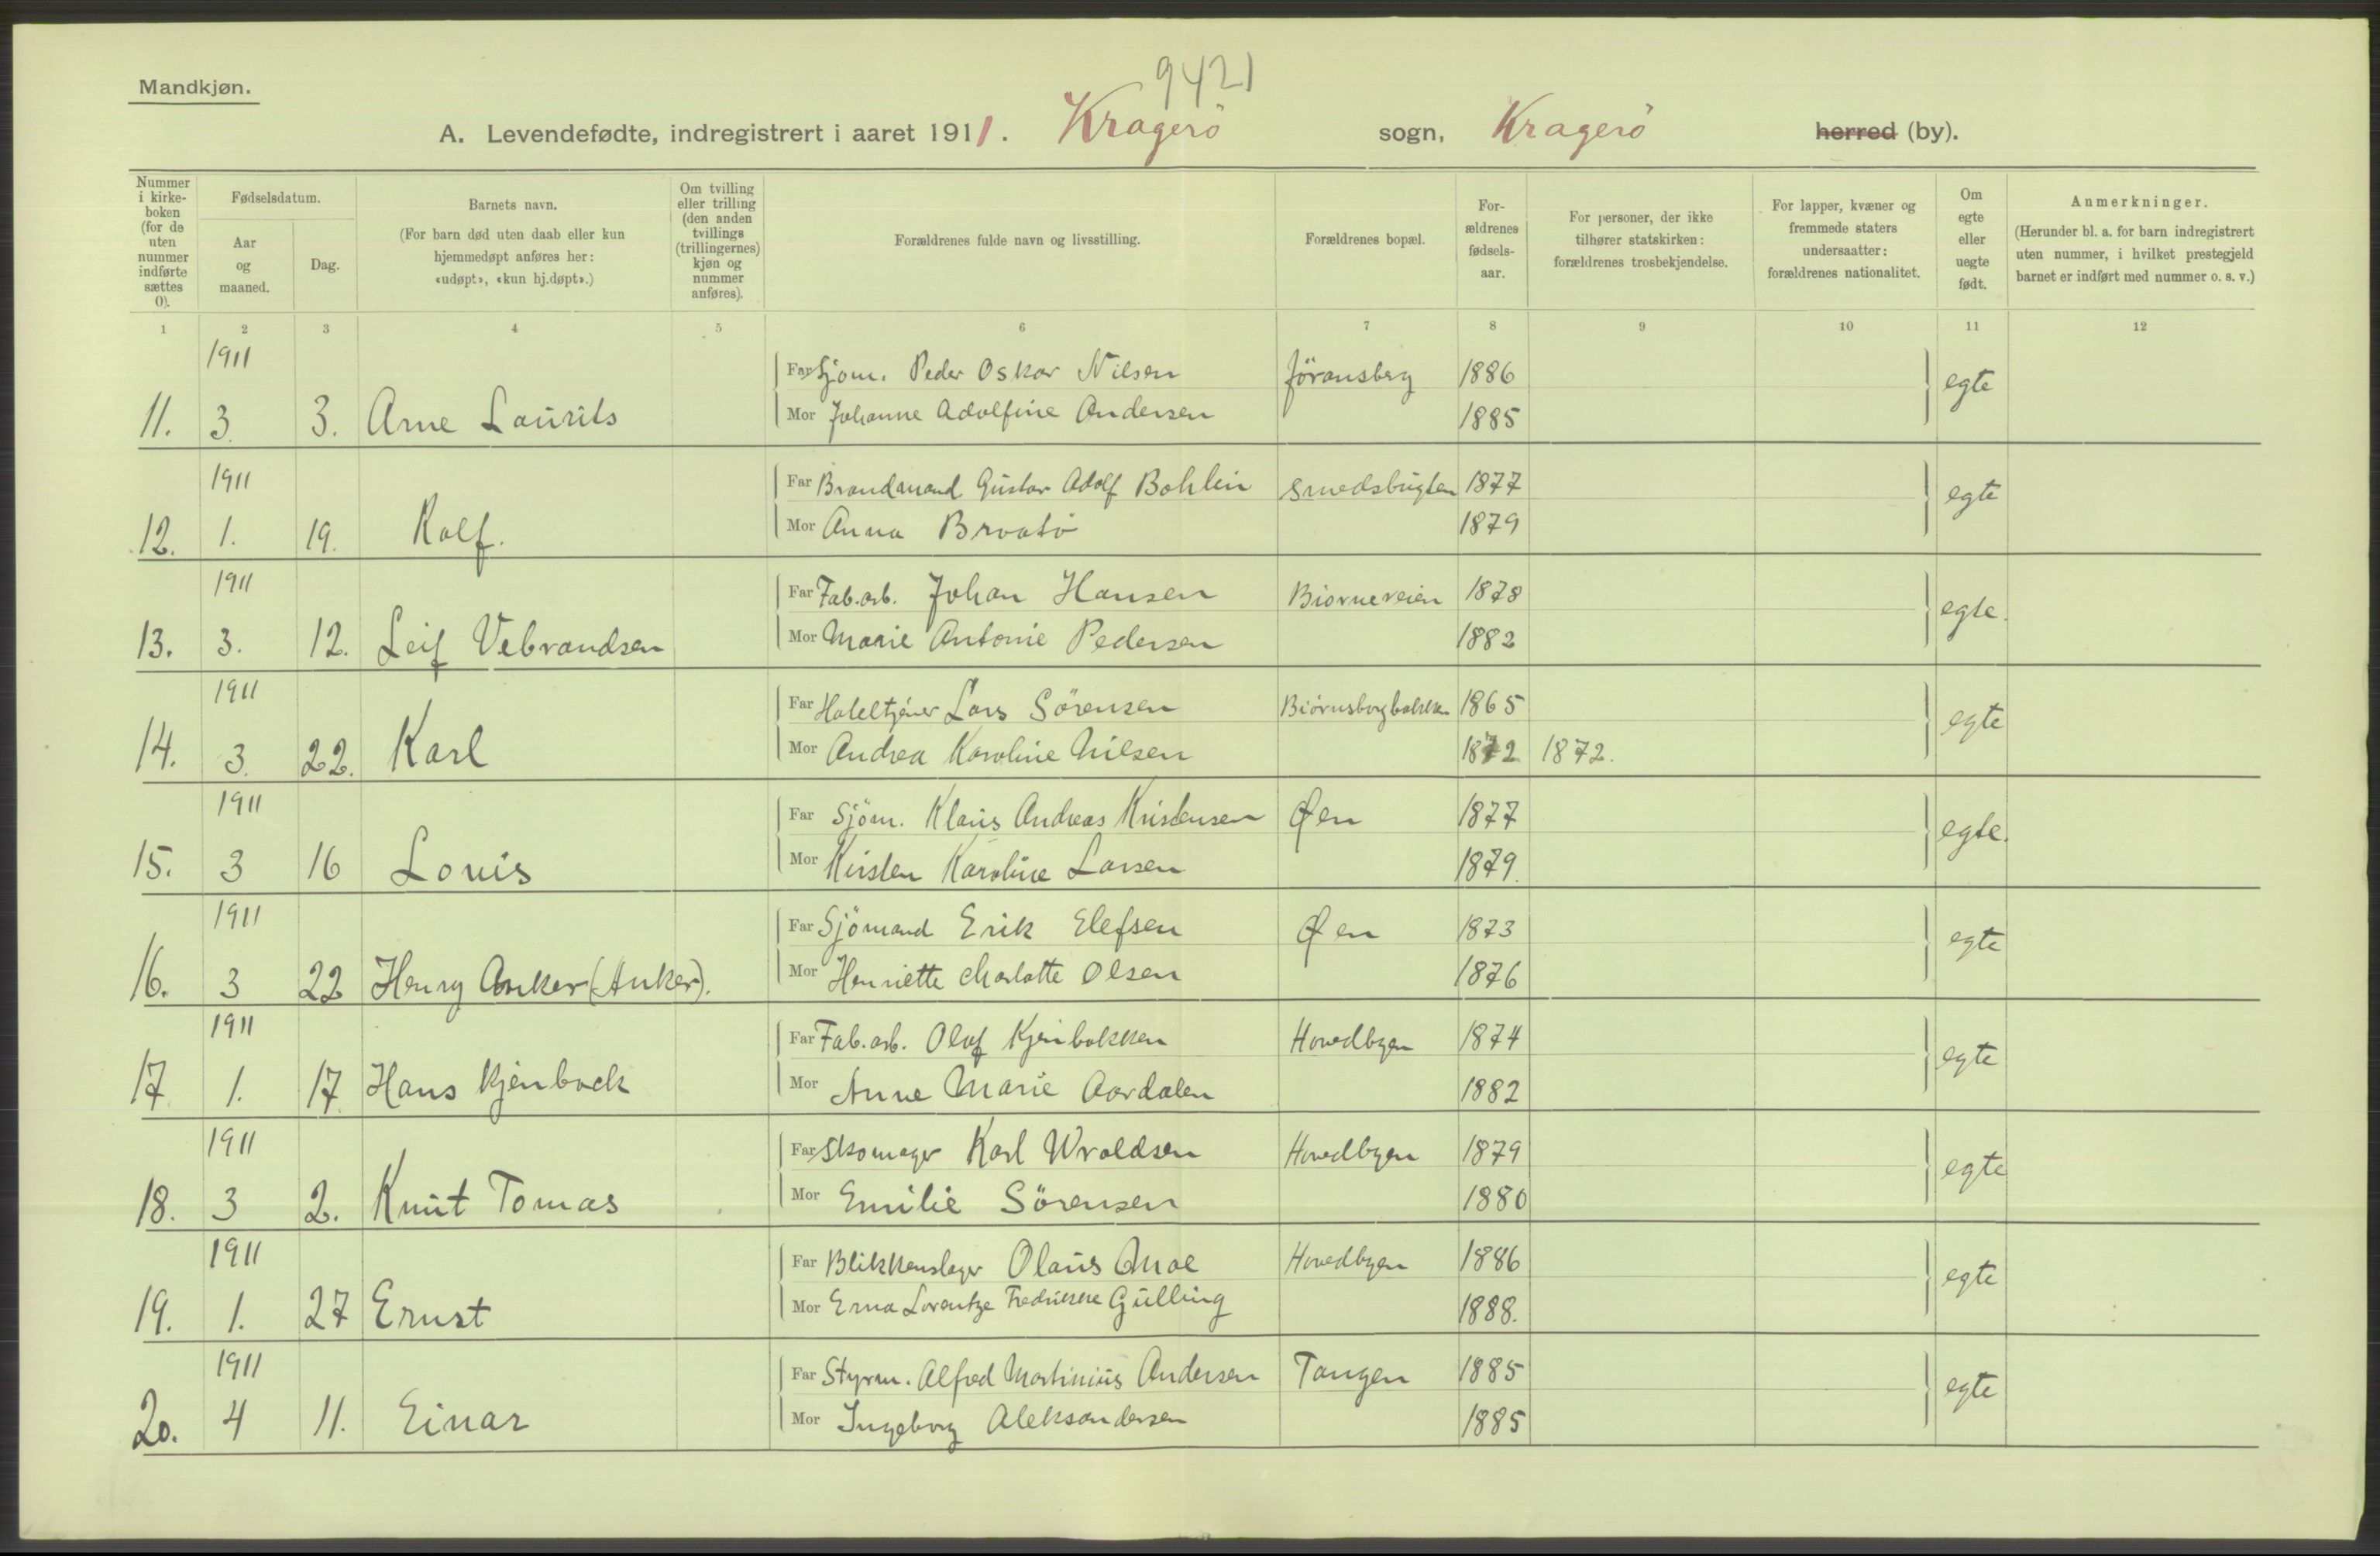 9421
Mandkjøn.
A. Levendefødte, indregistrert i aaret 1911. Kragerö sogn, Kragerö herred (by).
Nummer i kirkeboken (for de uten nummer indførte sættes 0).
Fødselsdatum.
Aar og maaned.
Dag.
Barnets navn. (For barn død uten daab eller kun hjemmedøpt anføres her: «udøpt», «kun hj.døpt».)
Om tvilling eller trilling (den anden tvillings (trillingernes) kjøn og nummer anføres).
Forældrenes fulde navn og livsstilling.
Forældrenes bopæl.
Forældrenes fødselsaar.
For personer, der ikke tilhører statskirken: forældrenes trosbekjendelse.
For lapper, kvæner og fremmede staters undersaatter: forældrenes nationalitet.
Om egte eller uegte født.
Anmerkninger. (Herunder bl. a. for barn indregistrert uten nummer, i hvilket prestegjeld barnet er indført med nummer o. s. v.)
1 2 3 4 5 6 7 8 9 10 11 12
1911 Far Sjöm. Peder Oskar Nilsen Jöransberg 1886 egte
11. 3. 3. Arne Laurits Mor Johanne Adolfine Andersen 1885
1911 Far Brandmand Gustav Adolf Bohlin Smedsbugten 1877 egte
12. 1. 19. Rolf. Mor Anna Bråtö 1879
1911 Far Fab.arb. Johan Hansen Biorneveien 1878 egte.
13. 3. 12. Leif Vebrandsen Mor Marie Antonie Pedersen 1882
1911 Far Hoteltjener Lars Sörensen Biörnsborgbakken 1865 egte
14. 3. 22. Karl Mor Andrea Karoline Nilsen 1872 1872.
1911 Far Sjöm. Klaus Andreas Kristensen Øen 1877 egte.
15. 3 16 Louis Mor Kirsten Karoline Larsen 1879.
1911 Far Sjömand Erik Elefsen Øen 1873 egte
16. 3 22 Henry Anker (Anker). Mor Henriette Charlotte Olsen 1876
1911 Far Fab.arb. Olaf Kjenbakken Hovedbyen 1874 egte
17 1. 17 Hans Kjenbock Mor Anne Marie Aardalen 1882
1911 Far Skomager Karl Wroldsen Hovedbyen 1879 egte
18. 3 2. Knut Tomas Mor Emilie Sörensen 1880
1911 Far Blikkenslager Olaus Moe Hovedbyen 1886 egte
19. 1. 27 Ernst Mor Erna Lorentze Fredrikke Gulling 1888.
1911 Far Styrm. Alfred Martinius Andersen Tangen 1885 egte
20. 4 11. Einar Mor Ingeborg Aleksandersen 1885